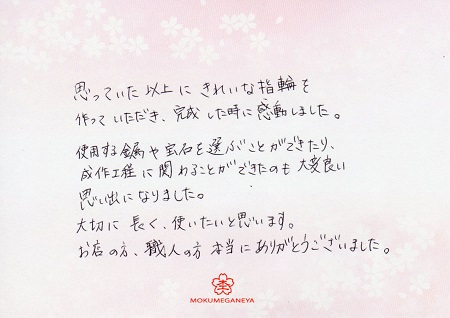 思っていた以上にきれいな指輪を
作っていただき、完成した時に感動しました。
使用する金属や宝石を選ぶことができたり、
成作工程に関わることができたのも大変良い
思い出になりました。
大切に長く、使いたいと思います。
お店の方、職人の方本当にありがとうございました。
MOKUMEGANEYA